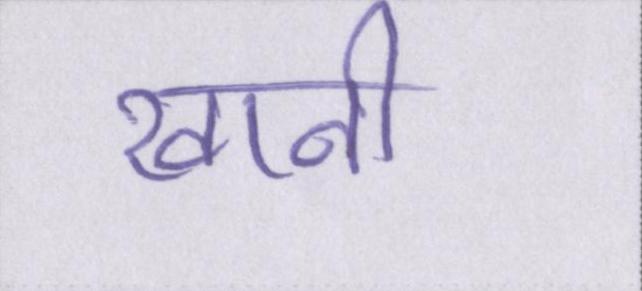 खानी